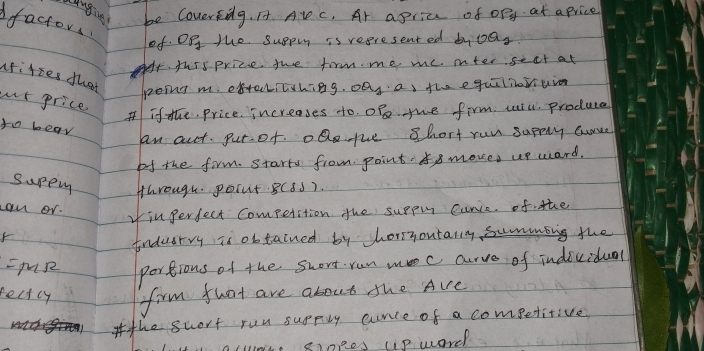 factors,
be Covereidg. it AVC. At aprice of OP3 at aprice
of OP3 the supply is represented by OQ3
At this price the firm me mc inter sect at
tities that
point m. establishing. OQ3 as the equilibrium
price
# if the price increases to. OP2 the firm will produce
to bear
an out. put. of. OQ2 the Short run supply curve
of the firm. starts from point. & moves up ward.
Supply
through. point S(SS).
an or.
in perfect Competition the supply curve. of the
industry is obtained by horizontally, Summing the
=MR
portions of the Short. run mc curve of individual
fectcy
firm that are about the AVC
# the short run supply curve of a competitive
slopes up ward